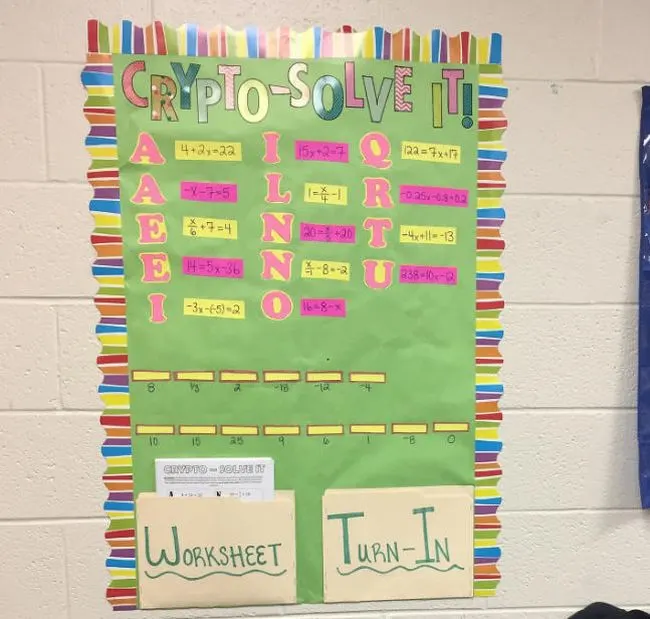 CRYPTO-SOLVE IT!
A 4+2x=22 I 15x+2=7 Q 122=7x+17
A -x-7=5 L 1=x/4-1 R -0.25x-0.8=0.2
E x/6+7=4 N 20=x/5+20 T -4x+11=-13
E 14=5x-36 N -8=-2 U 238=10x-2
I -3x-(-5)=2 O 16=8-x
8 1/3 2 -18 -12 -4
10 15 25 9 6 1 -8 0
CRYPTO - SOLVE IT
WORKSHEET TURN-IN